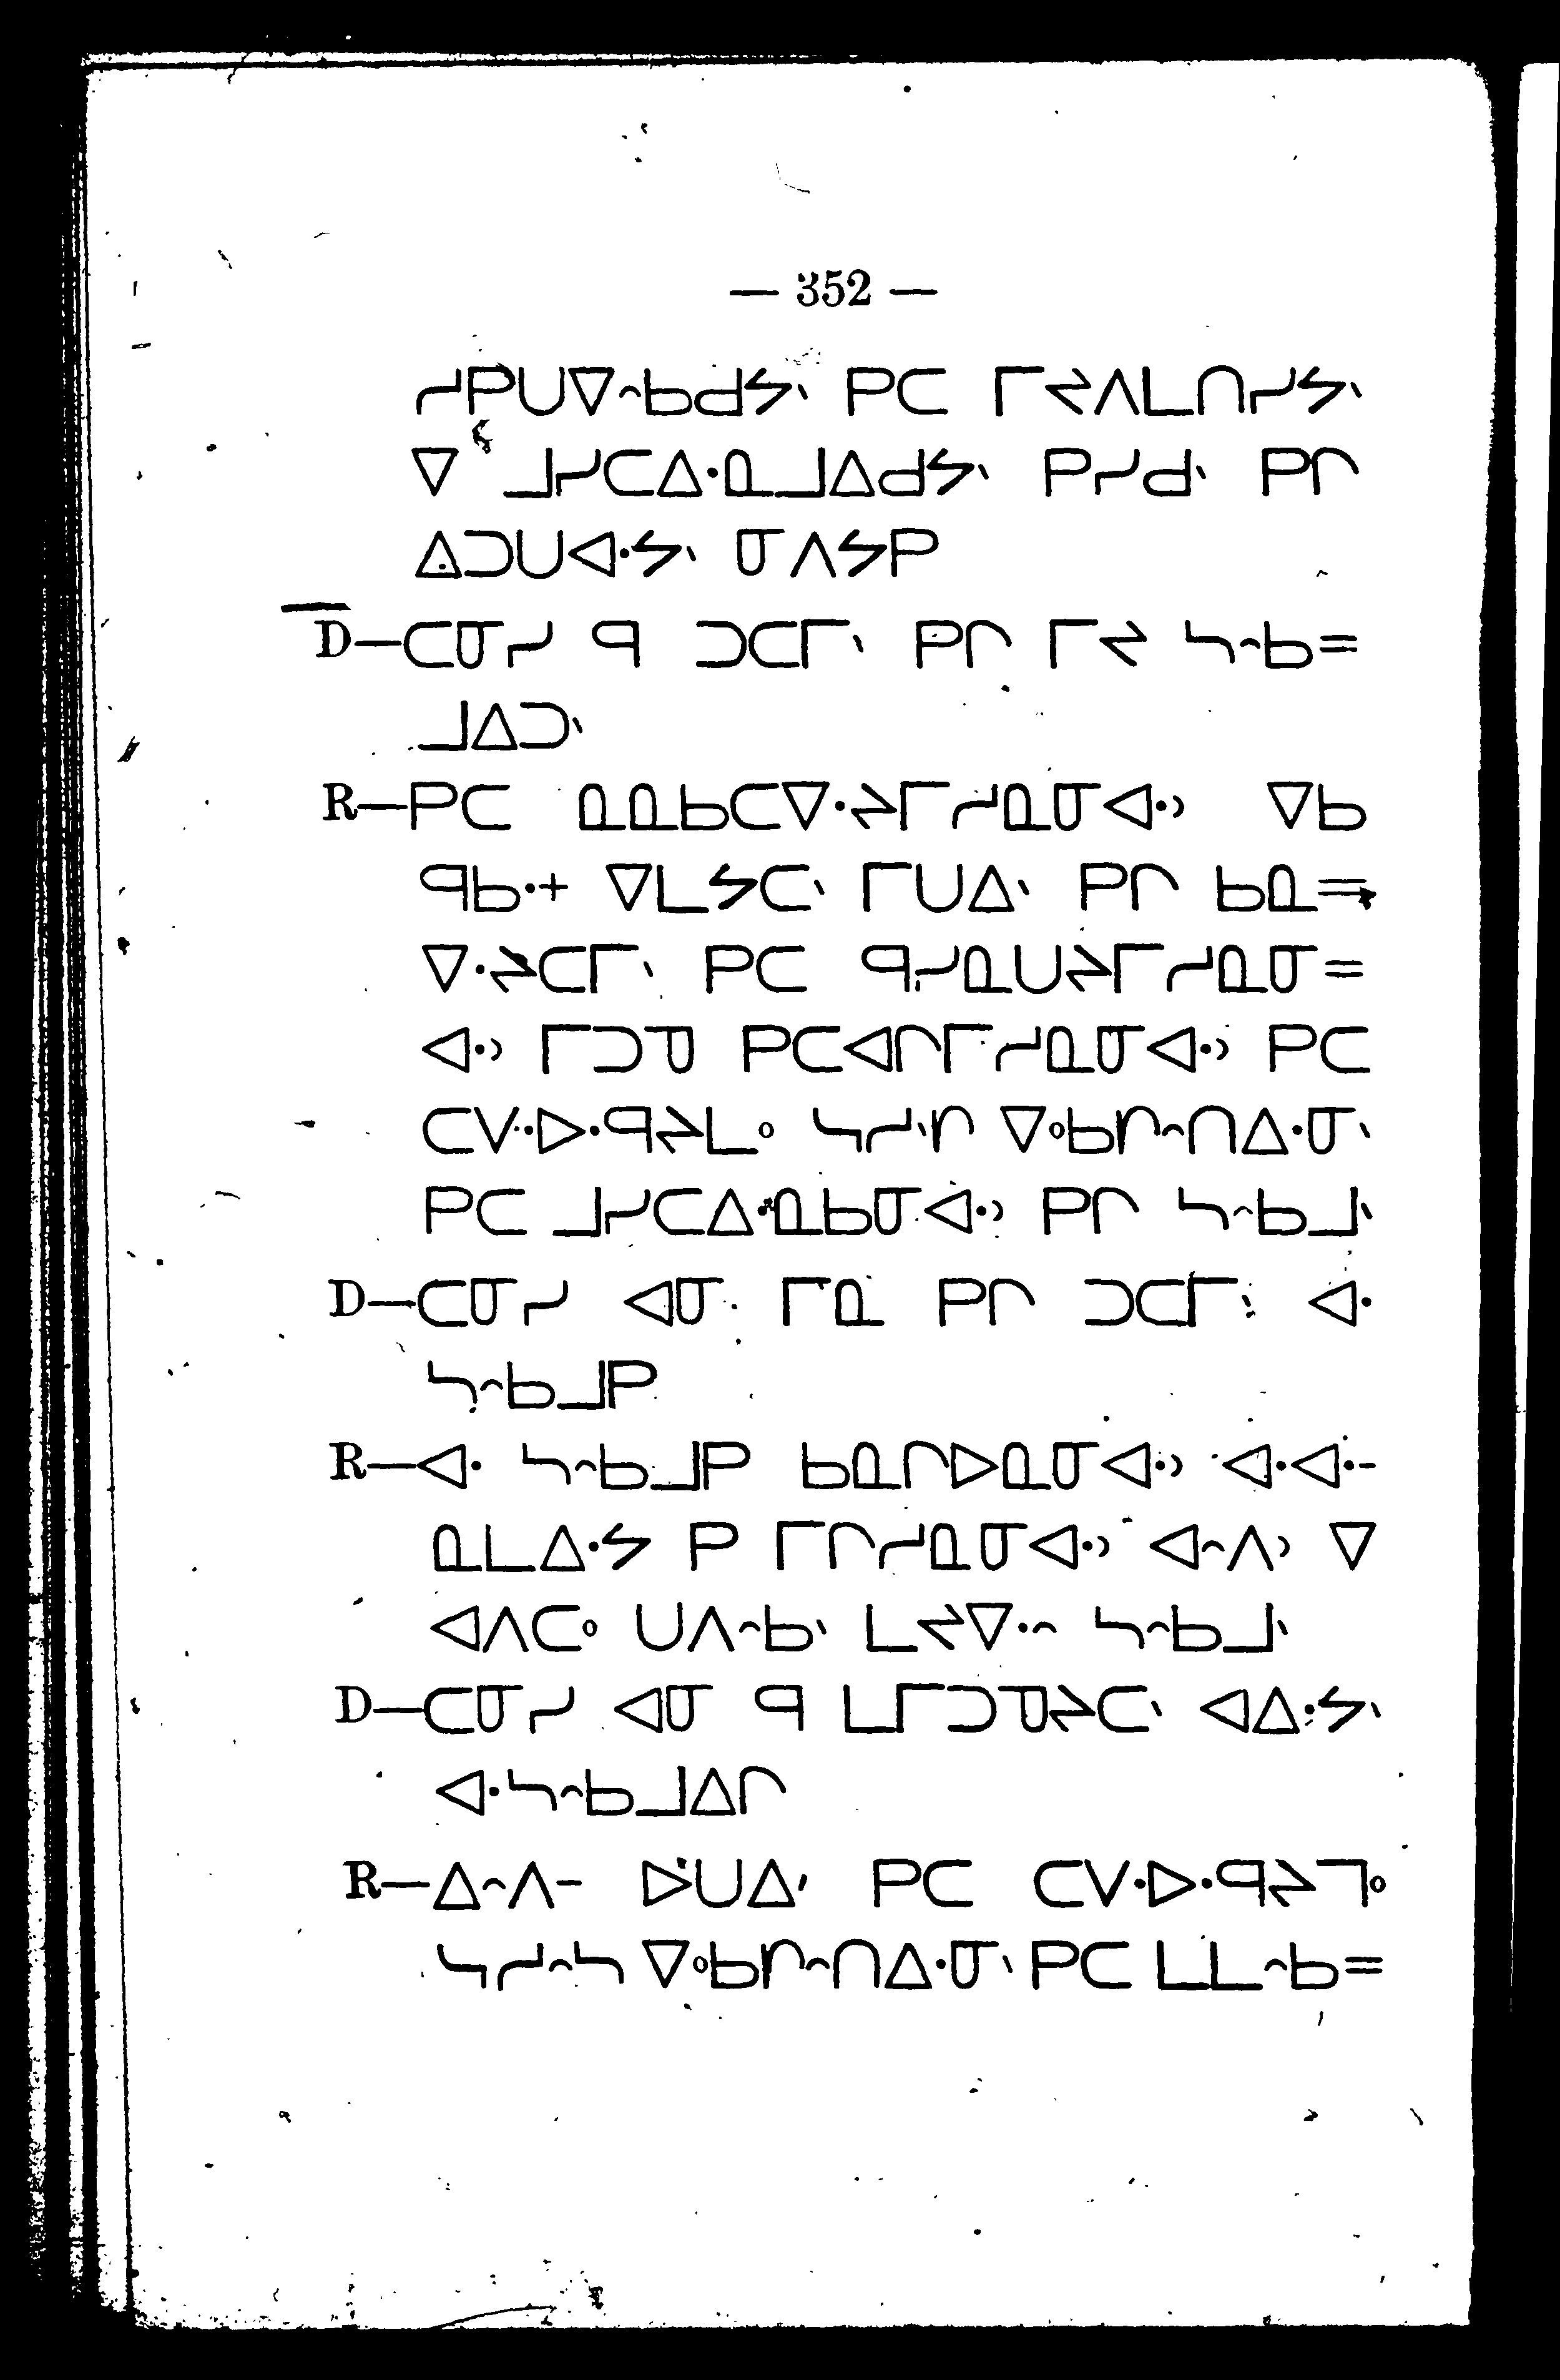 — 352 —
ᓱᑭᑌᐁᐢᑲᑯᔭᐠ ᑭᑕ ᒥᔪᐱᒪᑎᓯᔭᐠ
ᐁ ᒧᓯᑕᐃᐧᓇᒧᐃᑯᔭᐠ ᑭᓯᑯᐠ ᑭᒋ
ᐃᑐᑌᐊᐧᔭᐠ ᓂᐱᔭᑭ
D—ᑕᓂᓯ ᑫ ᑐᑕᒥᐠ ᑭᒋ ᒥᔪ ᓴᐢᑲ=
ᒧᐃᑐᐠ
R—ᑭᑕ ᓇᓇᑲᑕᐁᐧᔨᒥᓱᓇᓂᐊᐧᐣ ᐁᑲ
ᑫᑲᐧ+ ᐁᒪᔭᑕᐠ ᒥᑌᐃᐠ ᑭᒋ ᑲᓇ=
ᐁᐧᔨᑕᒥᐠ ᑭᑕ ᑫᓯᓇᑌᔨᒥᓱᓇᓂ=
ᐊᐧᐣ ᒥᑐᓀ ᑭᑕᐊᒋᒥᓱᓇᓂᐊᐧᐣ ᑭᑕ
ᑕᐯᐧᐅᐧᑫᔨᒪᐤ ᓭᓱᐠᕆ ᐁᐤᑲᕆᐢᑎᐃᐧᓂᐠ
ᑭᑕ ᒧᓯᑕᐃᐧᓇᑲᓂᐊᐧᐣ ᑭᒋ ᓴᐢᑲᒧᐠ
D—ᑕᓂᓯ ᐊᓂ ᒥᓇ ᑭᒋ ᑐᑕᒥᐠ ᐊᐧ
ᓴᐢᑲᒧᑭ
R—ᐊᐧ ᓴᐢᑲᒧᑭ ᑲᓇᒋᐅᓇᓂᐊᐧᐣ ᐊᐧᐊᐧᐨ
ᓇᒪᐃᐧᔭ ᑭ ᒥᒋᓱᓇᓂᐊᐧᐣ ᐊᐢᐱᐣ ᐁ
ᐊᐱᑕᐤ ᑌᐱᐢᑲᐠ ᒪᔪᐁᐧᐢ ᓴᐢᑲᒧᐠ
D—ᑕᓂᓯ ᐊᓂ ᑫ ᒪᒥᑐᓀᔨᑕᐠ ᐊᐃᐧᔭᐠ
ᐊᐧᓴᐢᑲᒧᐃᒋ
R—ᐃᐢᐱᐨ ᐅᑌᐃᐟ ᑭᑕ ᑕᐯᐧᐅᐧᑫᔨᒣᐤ
ᓭᓱᐢᓴ ᐁᐤᑲᕆᐢᑎᐃᐧᓂᐠ ᑭᑕ ᒪᒪᐢᑲ=